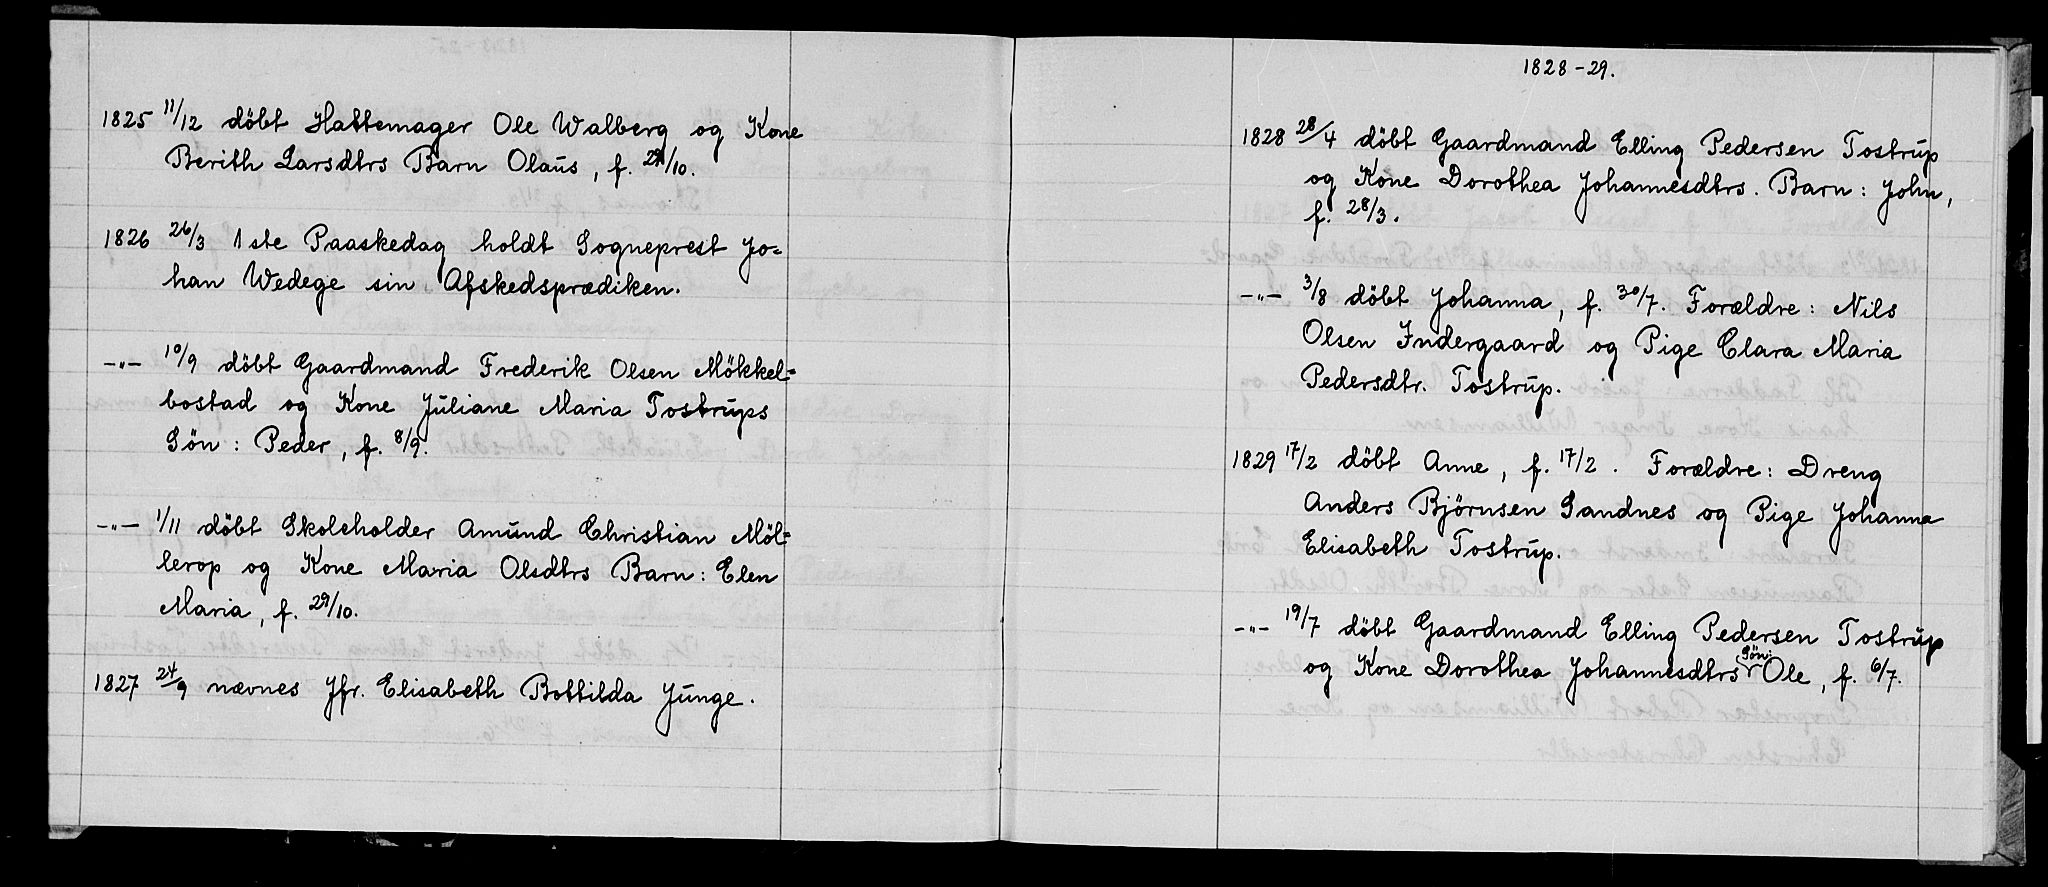 1825 11/12 döbt Hattemager Ole Walberg og Kone
Berith Larsdtrs Barn Olaus, f. /10.
1826 26/3 1ste Paaskedag holdt Sogneprest Jo=
han Wedege sin Afskedsprædiken.
-"- 10/9 döbt Gaardmand Frederik Olsen Mökkel=
bostad og Kone Juliane Maria Tostrups
Sön: Peder, f. 8/9.
-"- 1/11 döbt Skoleholder Amund Christian Möl=
lerop og Kone Maria Olsdtrs Barn: Elen
Maria, f. 29/10.
1827 24/9 nævnes Jfr. Elisabeth Bottilda Junge.
1828-29.
1828 28/4 döbt Gaardmand Elling Pedersen Tostrup
og Kone Dorothea Johannesdtrs. Barn: John,
f. 28/3.
-"- 3/8 döbt Johanna, f. 30/7. Forældre: Nils
Olsen Indergaard og Pige Clara Maria
Pedersdtr. Tostrup.
1829 17/2 döbt Anne, f. 17/2. Forældre: Dreng
Anders Bjørnsen Sandnes og Pige Johanna
Elisabeth Tostrup.
-"- 19/7 döbt Gaardmand Elling Pedersen Tostrup
og Kone Dorothea Johannesdtrs Sön: Ole, f. 6/7.